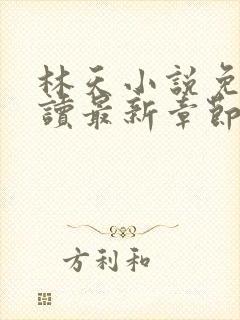 林天小說免
讀最新章節
方利和